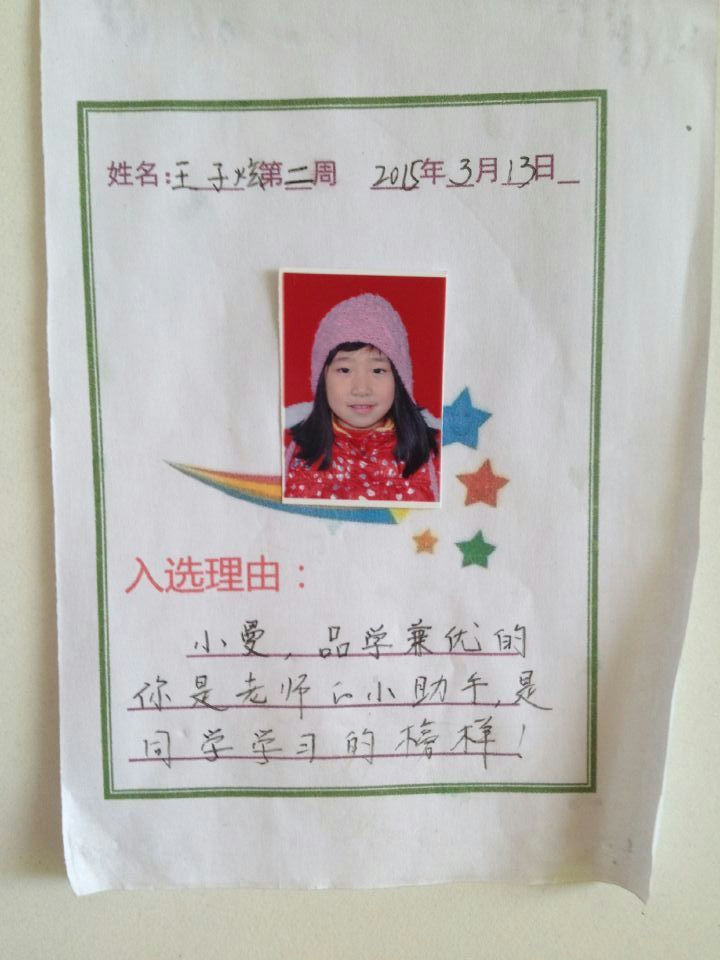 姓名:王子炫第二周 2015年3月13日
入选理由:
小曼,品学兼优的
你是老师的小助手,是
同学学习的榜样!